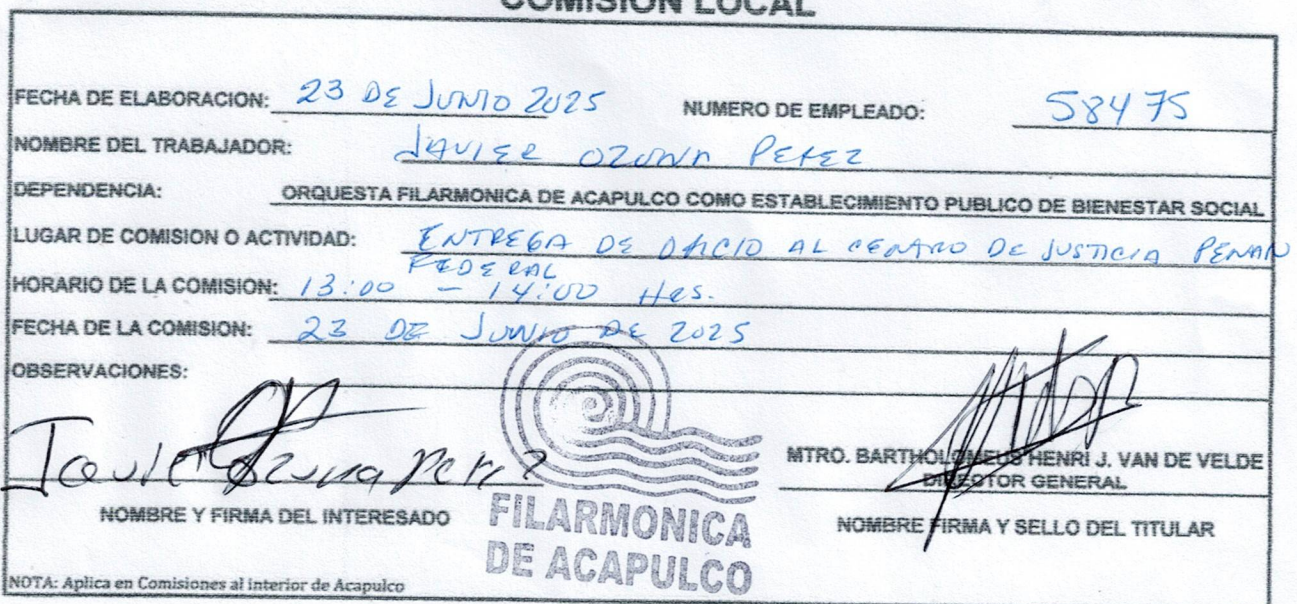 COMISION LOCAL
FECHA DE ELABORACION: 23 DE JUNIO 2025 NUMERO DE EMPLEADO: 58475
NOMBRE DEL TRABAJADOR: JAVIER OZUNA PEREZ
DEPENDENCIA: ORQUESTA FILARMONICA DE ACAPULCO COMO ESTABLECIMIENTO PUBLICO DE BIENESTAR SOCIAL
LUGAR DE COMISION O ACTIVIDAD: ENTREGA DE OFICIO AL CENTRO DE JUSTICIA PENAL
FEDERAL
HORARIO DE LA COMISION: 13:00 - 14:00 Hrs.
FECHA DE LA COMISION: 23 DE JUNIO DE 2025
OBSERVACIONES:
Javier Ozuna Perez
MTRO. BARTHOLOMEUS HENRI J. VAN DE VELDE
DIRECTOR GENERAL
NOMBRE Y FIRMA DEL INTERESADO
NOMBRE FIRMA Y SELLO DEL TITULAR
FILARMONICA
DE ACAPULCO
NOTA: Aplica en Comisiones al interior de Acapulco